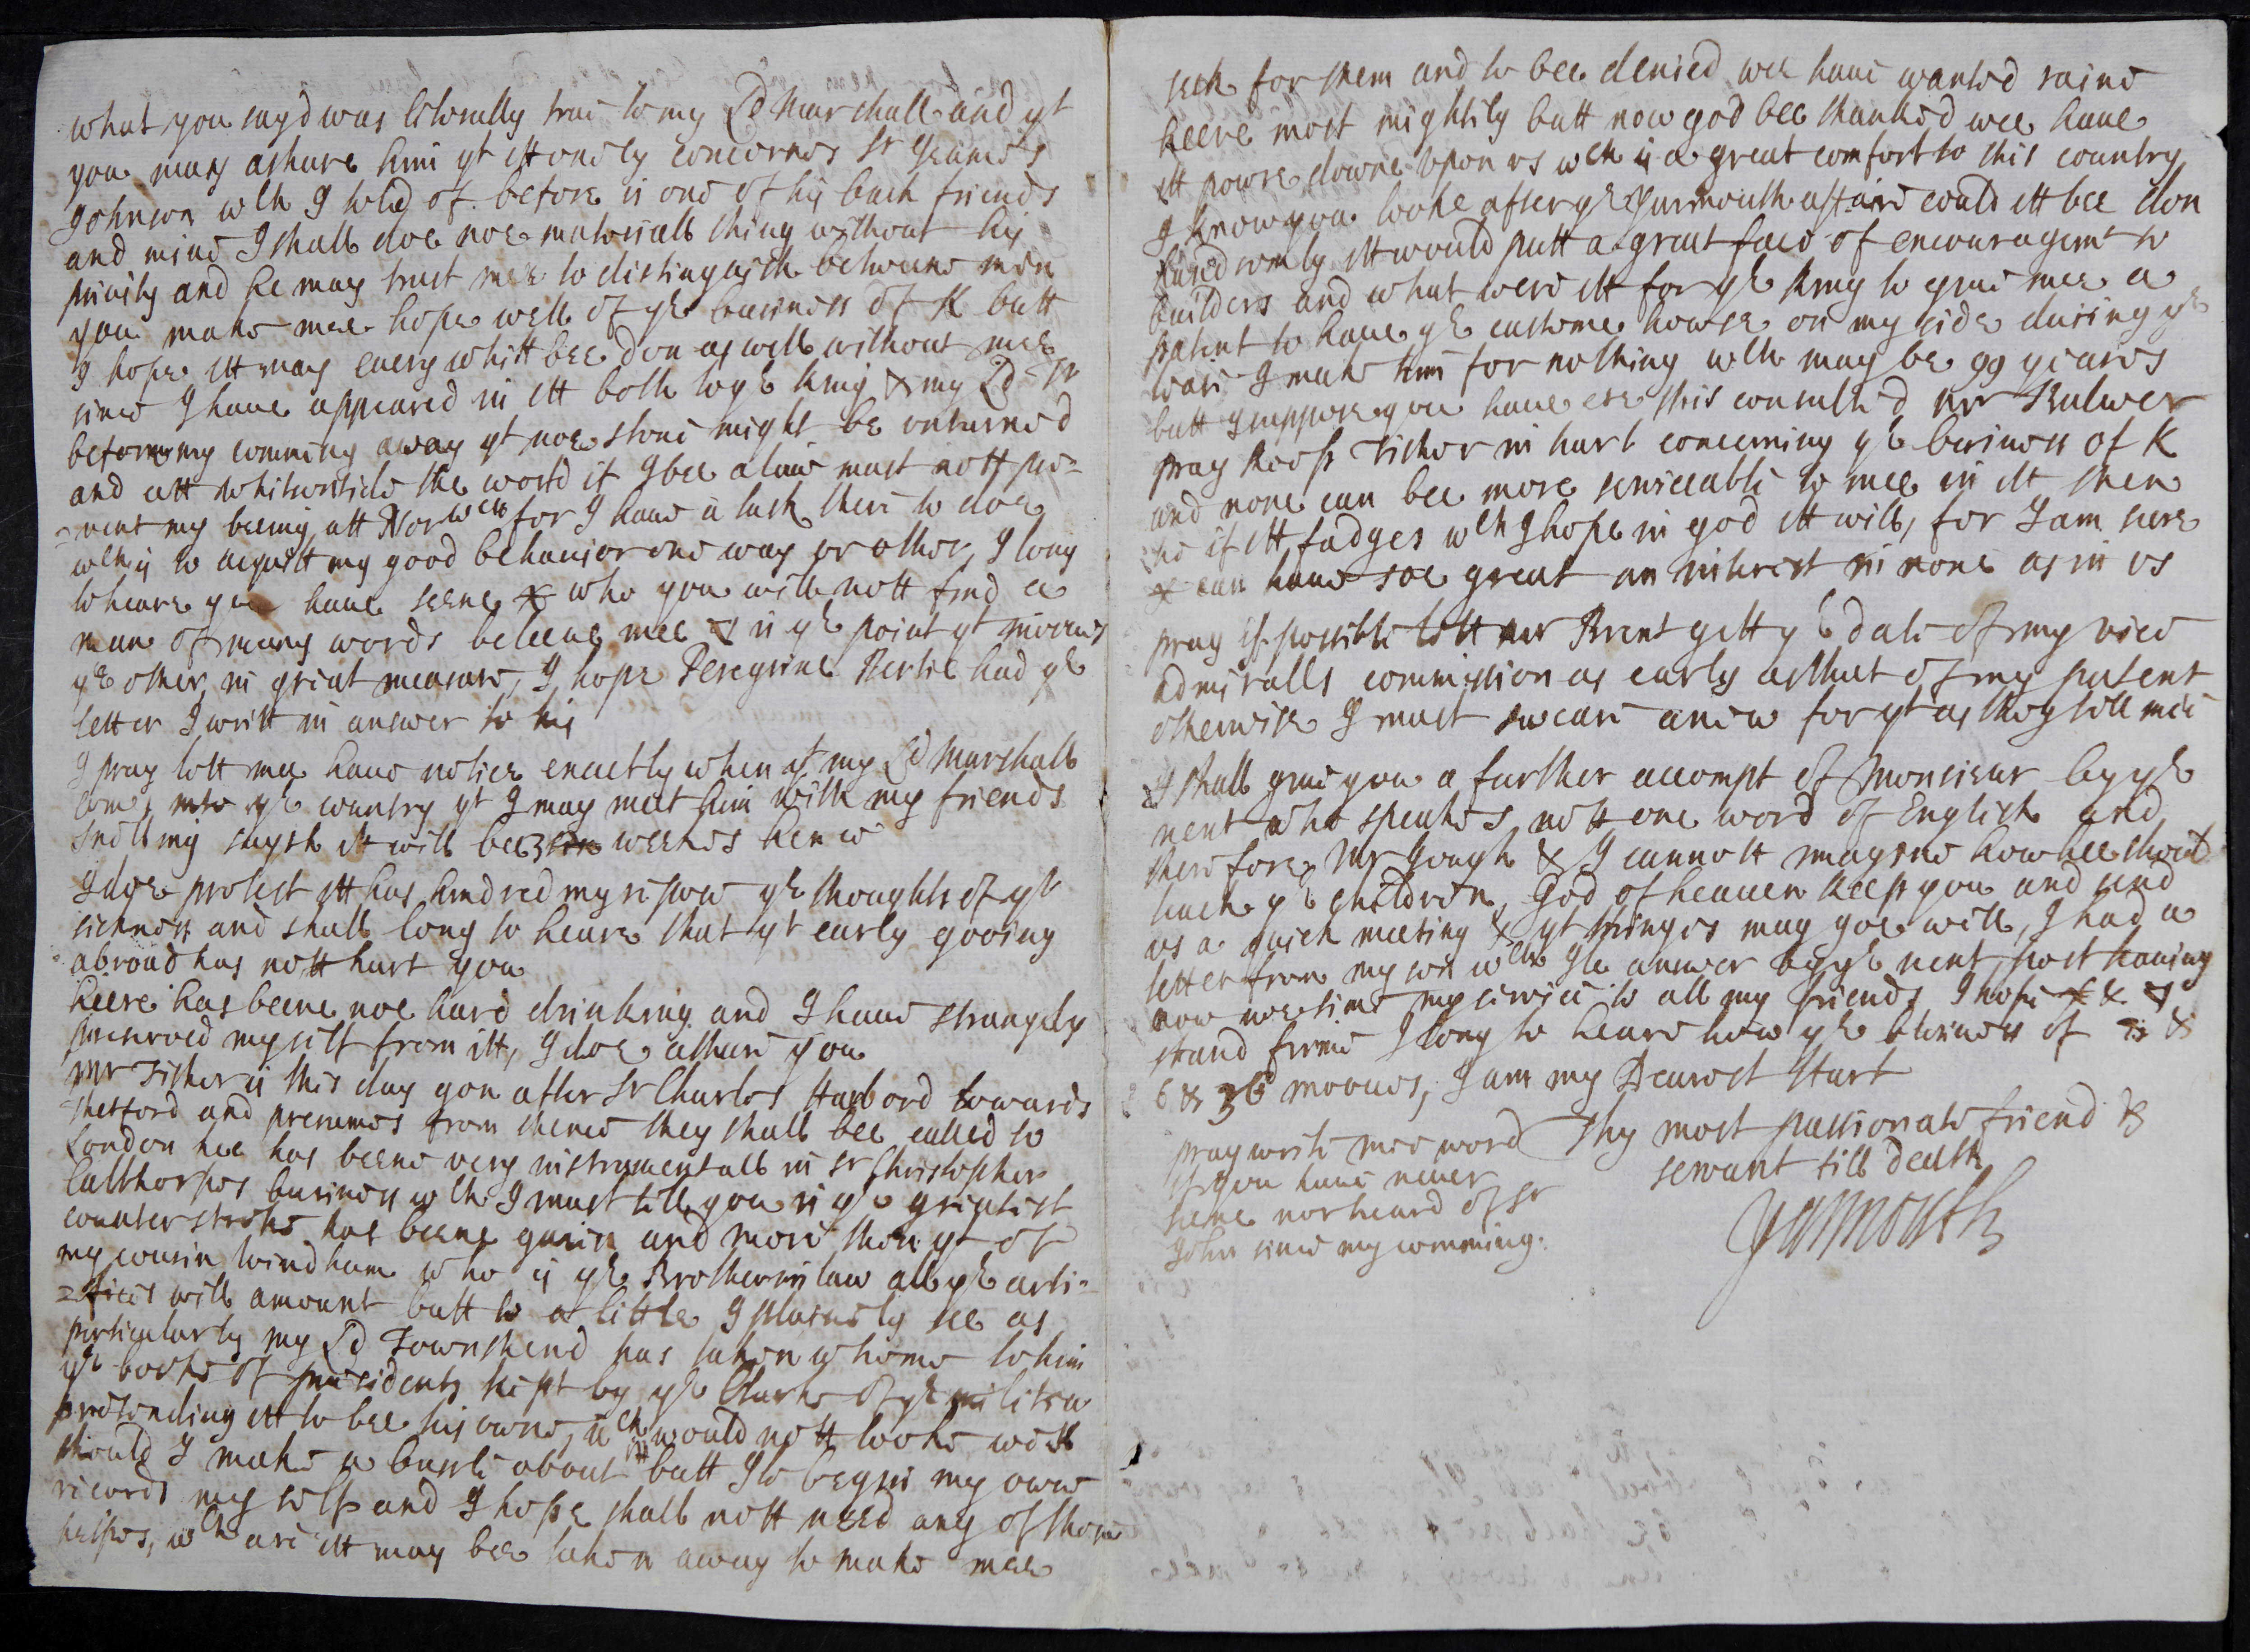 what you sayd was litterally true to my Ld Marshall and yt
you may ashure him yt itt onely concernes Sr Jeames
Johnson wch I told of before is one of his back friends
and mine I shall doe noe materiall thing without his
privity and he may trust mee to distinguish betweene men
you make mee hope well of ye business of K butt
I hope itt may every whitt bee don as well without mee
since I have appeared in itt both to ye King & my Ld Tr
before my comming away yt noe stone might be unturned
and att Whitsontide the world if I bee alive must nott pre=
=vent my beeing att Norwch for I have a task there to doe
wch is to acquitt my good behavior one way or other, I long
to heare you have seene who you will nott find a
man of many words beleeve mee is ye point yt mooves
ye other in great measure, I hope Peregrine Bertie had ye
letter I writt in answer to his
I pray lett mee have notice exactly when yt my Ld Marshall
comes into ye country yt I may meet him with my friends
Snelling sayth it will bee 3 weekes hence
I doe protest itt has hindred my repose ye thoughts of yr
sickness and shall long to heare that yt early gooing
abroad has nott hurt you
heere has beene noe hard drinking and I have strangely
preserved myself from itt, I doe ashure you
Mr Fisher is this day gon after Sr Charles Harbord towards
Thetford and presumes from thence they shall bee called to
London hee has beene very instrumentall in Sr Christopher
Calthorpes business wch I must tell you is ye greatest
counterstroke has beene given and more then yt of
my cousin Windham who is ye Brother in law all ye arti=
=fices will amount butt to a little I plainely see as
perticularly my Ld Townshend has taken whome to him
ye booke of presidents kept by ye Clarke of ye militia
pretending itt to bee his owne, wch would nott looke well
should I make a busle about itt butt Ile begin my owne
records my self and I hope shall nott need any of those
helpes, wch are itt may bee taken away to make mee
seek for them and to bee denied wee have wanted raine
heere most mightily butt now god bee thanked wee have
itt powre downe upon us wch is a great comfort to this country
I know you looke after ye Yarmouth affaire could itt bee don
handsomly itt would putt a great face of encouragemt to
builders and what were itt for ye King to give mee a
patent to have ye custome howse on my side during ye
lease I make him for nothing wch may be 99 yeares
butt I suppose you have ere this consulted Mr Bulwer
pray keep Fisher in hart concerning ye business of K
and none can bee more serviceable to mee in itt then
he if itt fadges wch I hope in god itt will, for I am sure
can have soe great an interest in none as in us
pray if possible lett Mr Brent gett ye date of my vice
admiralls commission as early as that of my patent
otherwise I must sweare anew for yt as they tell mee
I shall give you a further accompt of Monsieur by ye
next who speakes nott one word of English and
therefore Mr Gough & I cannott imagine how hee should
teach ye children, God of heaven keep you and send
us a quick meeting & yt things may goe well, I had a
letter from my son wch Ile answer by ye next post having
now noe time my service to all my friends I hope
stand firme I long to heare how ye business of
6 & 36 mooves, I am my Dearest Hart
Thy most passionate friend &
servant till death
Yarmouth
pray write mee word
if you have never
seene nor heard of Sr
John since my comming.